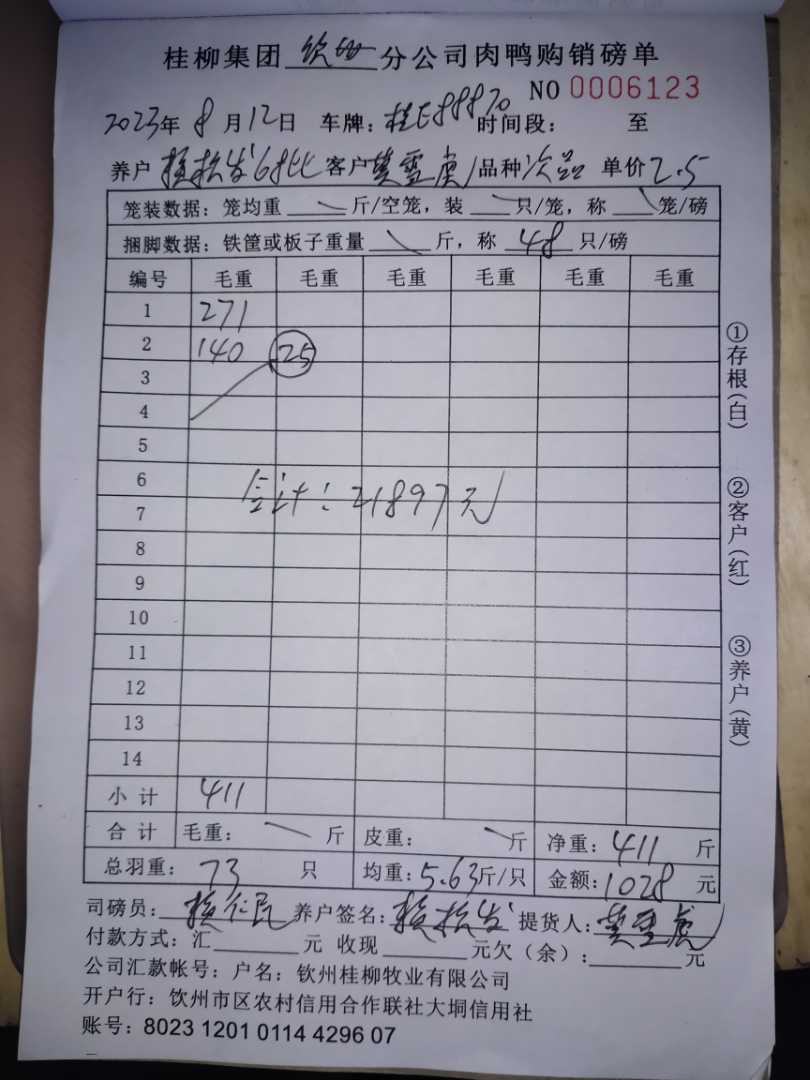 桂柳集团 钦州 分公司肉鸭购销磅单
NO 0006123
2023年 8月12日 车牌：桂E88870 时间段： 至
养户 发68 客户黄雲虎 品种次品 单价2.5
笼装数据：笼均重 斤/空笼，装 只/笼，称 笼/磅
捆脚数据：铁筐或板子重量 斤，称 48 只/磅
编号 毛重 毛重 毛重 毛重 毛重 毛重
1 271
2 140 25
3
4
5
6
合计：21897元
7
8
9
10
11
12
13
14
小计 411
合计 毛重： 斤 皮重： 斤 净重：411 斤
总羽重：73 只 均重：5.63斤/只 金额：1028 元
司磅员： 养户签名： 发 提货人：黄雲虎
付款方式：汇 元 收现 元欠（余）： 元
公司汇款帐号：户名：钦州桂柳牧业有限公司
开户行：钦州市区农村信用合作联社大垌信用社
账号：8023 1201 0114 4296 07
①存根(白)
②客户(红)
③养户(黄)